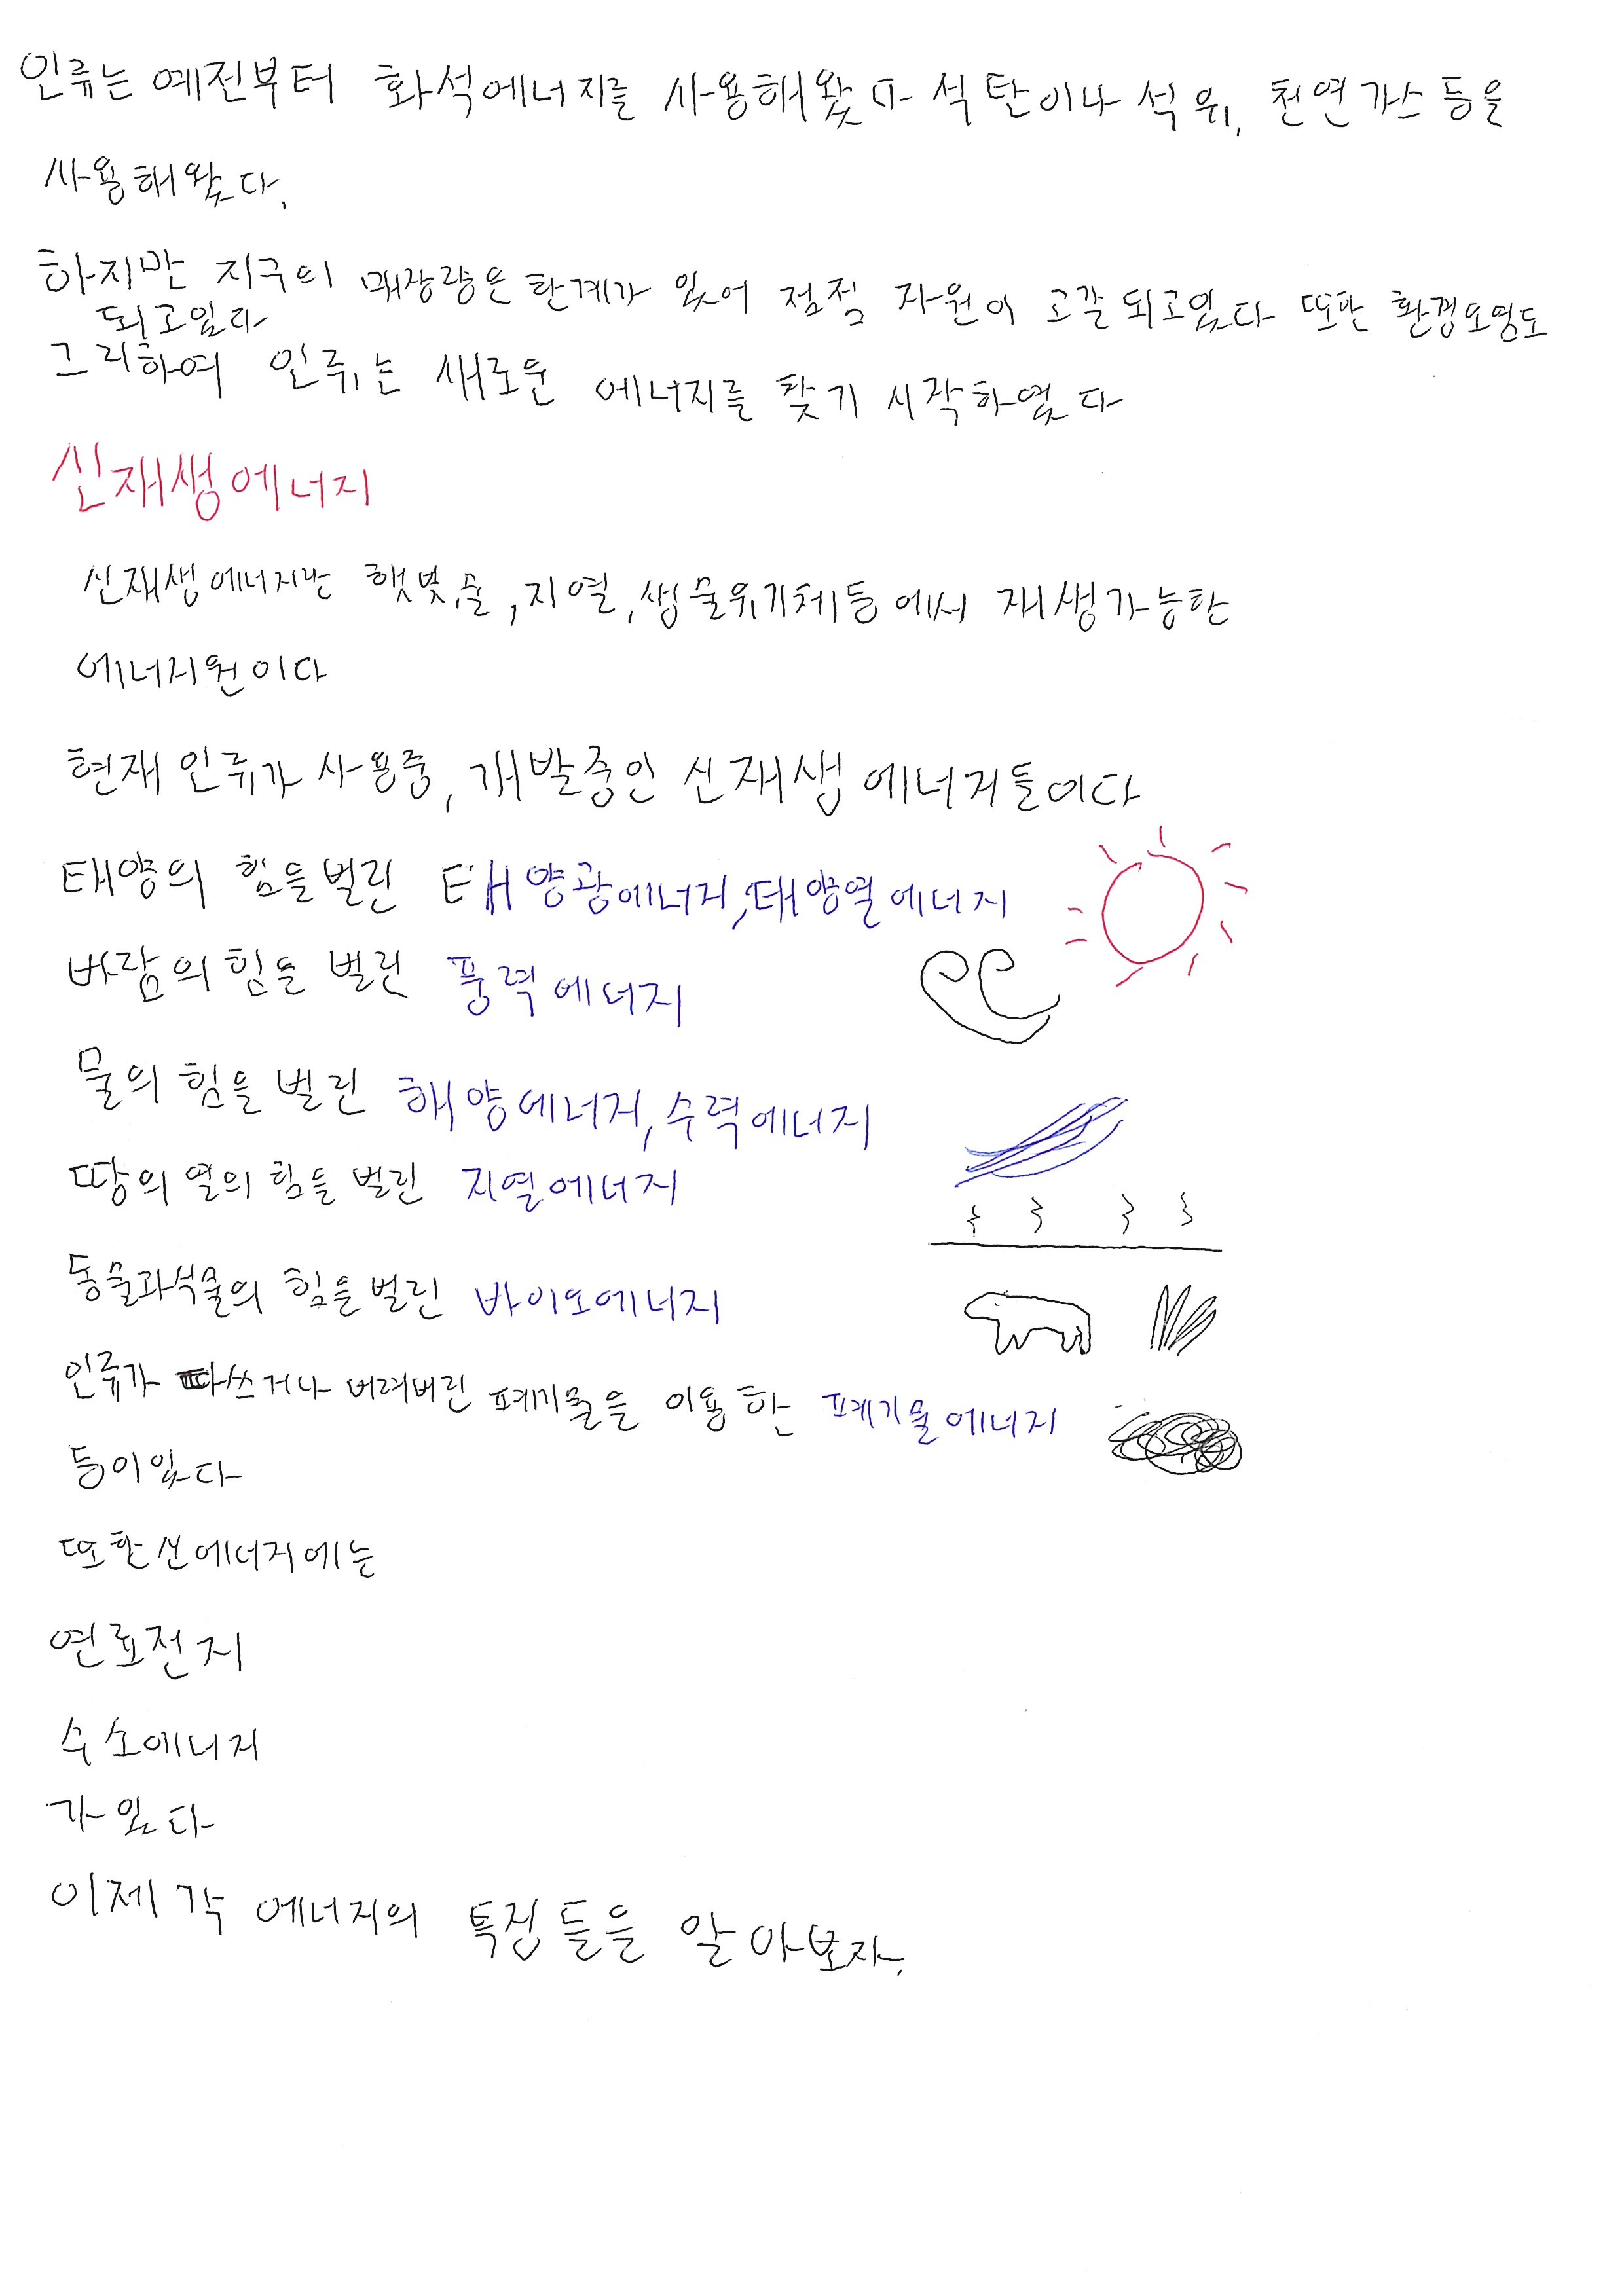 인류는 예전부터 화석에너지를 사용해왔다 석탄이나 석유, 천연가스등을
사용해왔다.
하지만 지구의 매장량은 한계가 있어 점점 자원이 고갈되고있다 또한 환경오염도
되고있다
그리하여 인류는 새로운 에너지를 찾기 시작하였다
신재생에너지
신재생에너지란 햇빛,물,지열,생물유기체등에서 재생가능한
에너지원이다
현재 인류가 사용중, 개발중인 신재생 에너지들이다
태양의 힘을빌린 태양광에너지,태양열에너지
바람의 힘을 빌린 풍력에너지
물의 힘을 빌린 해양에너지,수력에너지
땅의 열의 힘을 빌린 지열에너지
동물과식물의 힘을 빌린 바이오에너지
인류가 다쓰거나 버려버린 폐기물을 이용한 폐기물에너지
등이있다
또한신에너지에는
연료전지
수소에너지
가 있다
이제 각 에너지의 특징들을 알아보자.